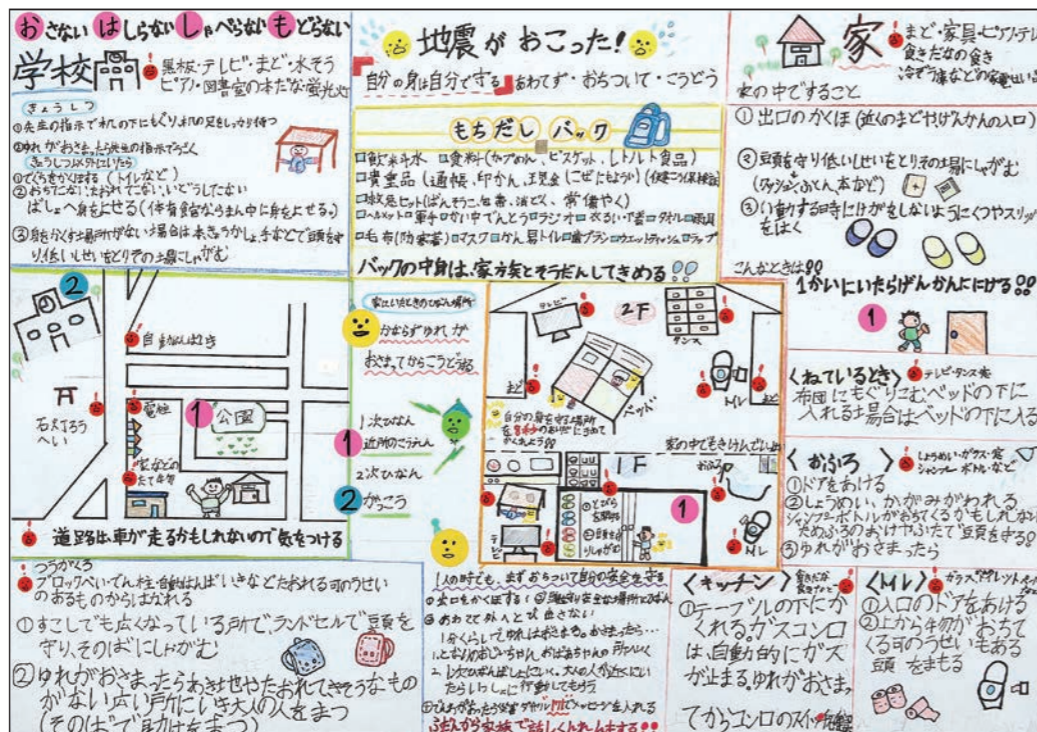 おさない はしらない しゃべらない もどらない
学校
黒板・テレビ・まど・水そう
ピアノ・図書室の本だな・蛍光灯
きょうしつ
①先生の指示で机の下にもぐり、机の足をしっかり持つ
②ゆれがおさまったら先生の指示でうごく
きょうしつ以外にいたら
①でぐちをかくほする(トイレなど)
②おちてこない、たおれてこない、いどうしてこない
ばしょへ身をよせる(体育館ならまん中に身をよせる。)
③身をかくす場所がない場合は
り、低いしせいをとりその場にしゃがむ
地震がおこった!
自分の身は自分で守る あわてず・おちついて・こうどう
もちだしバック
□飲料水 □食料(カップめん、ビスケット、レトルト食品)
□貴重品(通帳、印かん、現金(こぜにもよう))(けんこうほ険証)
□救急セット(ばんそうこ、包帯、消どく、常備やく)
□ヘルメット□軍手□かい中でんとう□ラジオ□衣るい下着□タオル□雨具
□毛布(防寒着)□マスク□かん易トイレ□歯ブラシ□ウェットティッシュ□ラップ
バックの中身は、家族とそうだんしてきめる!!
家
まど・家具・ピアノ・テレ
食きだなの食き
冷ぞう庫などの家電せい品
家の中ですること
①出口のかくほ(近くのまどやげんかんの入口)
②頭を守り低いしせいをとりその場にしゃがむ
(クッション、ふとん、本など)
③い動する時にけがをしないようにくつやスリッパ
をはく
こんなときは!!
1かいにいたらげんかんににげる!!
1
2
自動はんばいき
石灯ろう
へい
電柱
家などの
たて物
1
公園
道路は、車が走るかもしれないので気をつける
家にいたときのひなん場所
かならずゆれが
おさまってからこうどうする
1次ひなん
1
近所のこうえん
2次ひなん
2
がっこう
テレビ
2F
タンス
まど
ベッド
トイレ
まど
自分の身を守る場所
かくれよう!!
1F
おふろ
1
テレビ
トイレ
〈ねているとき〉
テレビ・タンス
布団にもぐりこむ、ベッドの下に
入れる場合はベッドの下に入る
〈おふろ〉
しょうめい・ガラス・
シャンプーボトル・など
①ドアをあける
②しょうめい、かがみがわれる、
シャンプーボトルがおちてくるかもしれない
ためふろのおけやふたで頭を守る!!
③ゆれがおさまったら
つうがくろ
ブロックべい・でん柱・自動はんばいきなどたおれる可のうせい
のあるものからはなれる
①すこしでも広くなっている所で、ランドセルで頭を
守り、そのばにしゃがむ
②ゆれがおさまったらあき地やたおれてきそうなもの
がない広い所にいき大人の人をまつ
(そのばで助けをまつ)
1人の時でも、まずおちついて自分の安全を守る
①出口をかくほする!
③あわてて外へとび出さない
1分くらいしてゆれはおさまる。おさまったら…
1.となりのおじいちゃん、おばあちゃんの所へいく
2.1次ひなんばしょにいく。大人の人が近くにい
たらいっしょに行動してもらう
ふだんから家族で話しくんれんもする!!
〈キッチン〉
食きだな
①テーブルの下にか
くれる。ガスコンロ
は、自動的にガス
が止まる。ゆれがおさまっ
てからコンロのスイッチを確認
〈トイレ〉
①入口のドアをあける
②上から物がおちて
くる可のうせいもある
頭をまもる